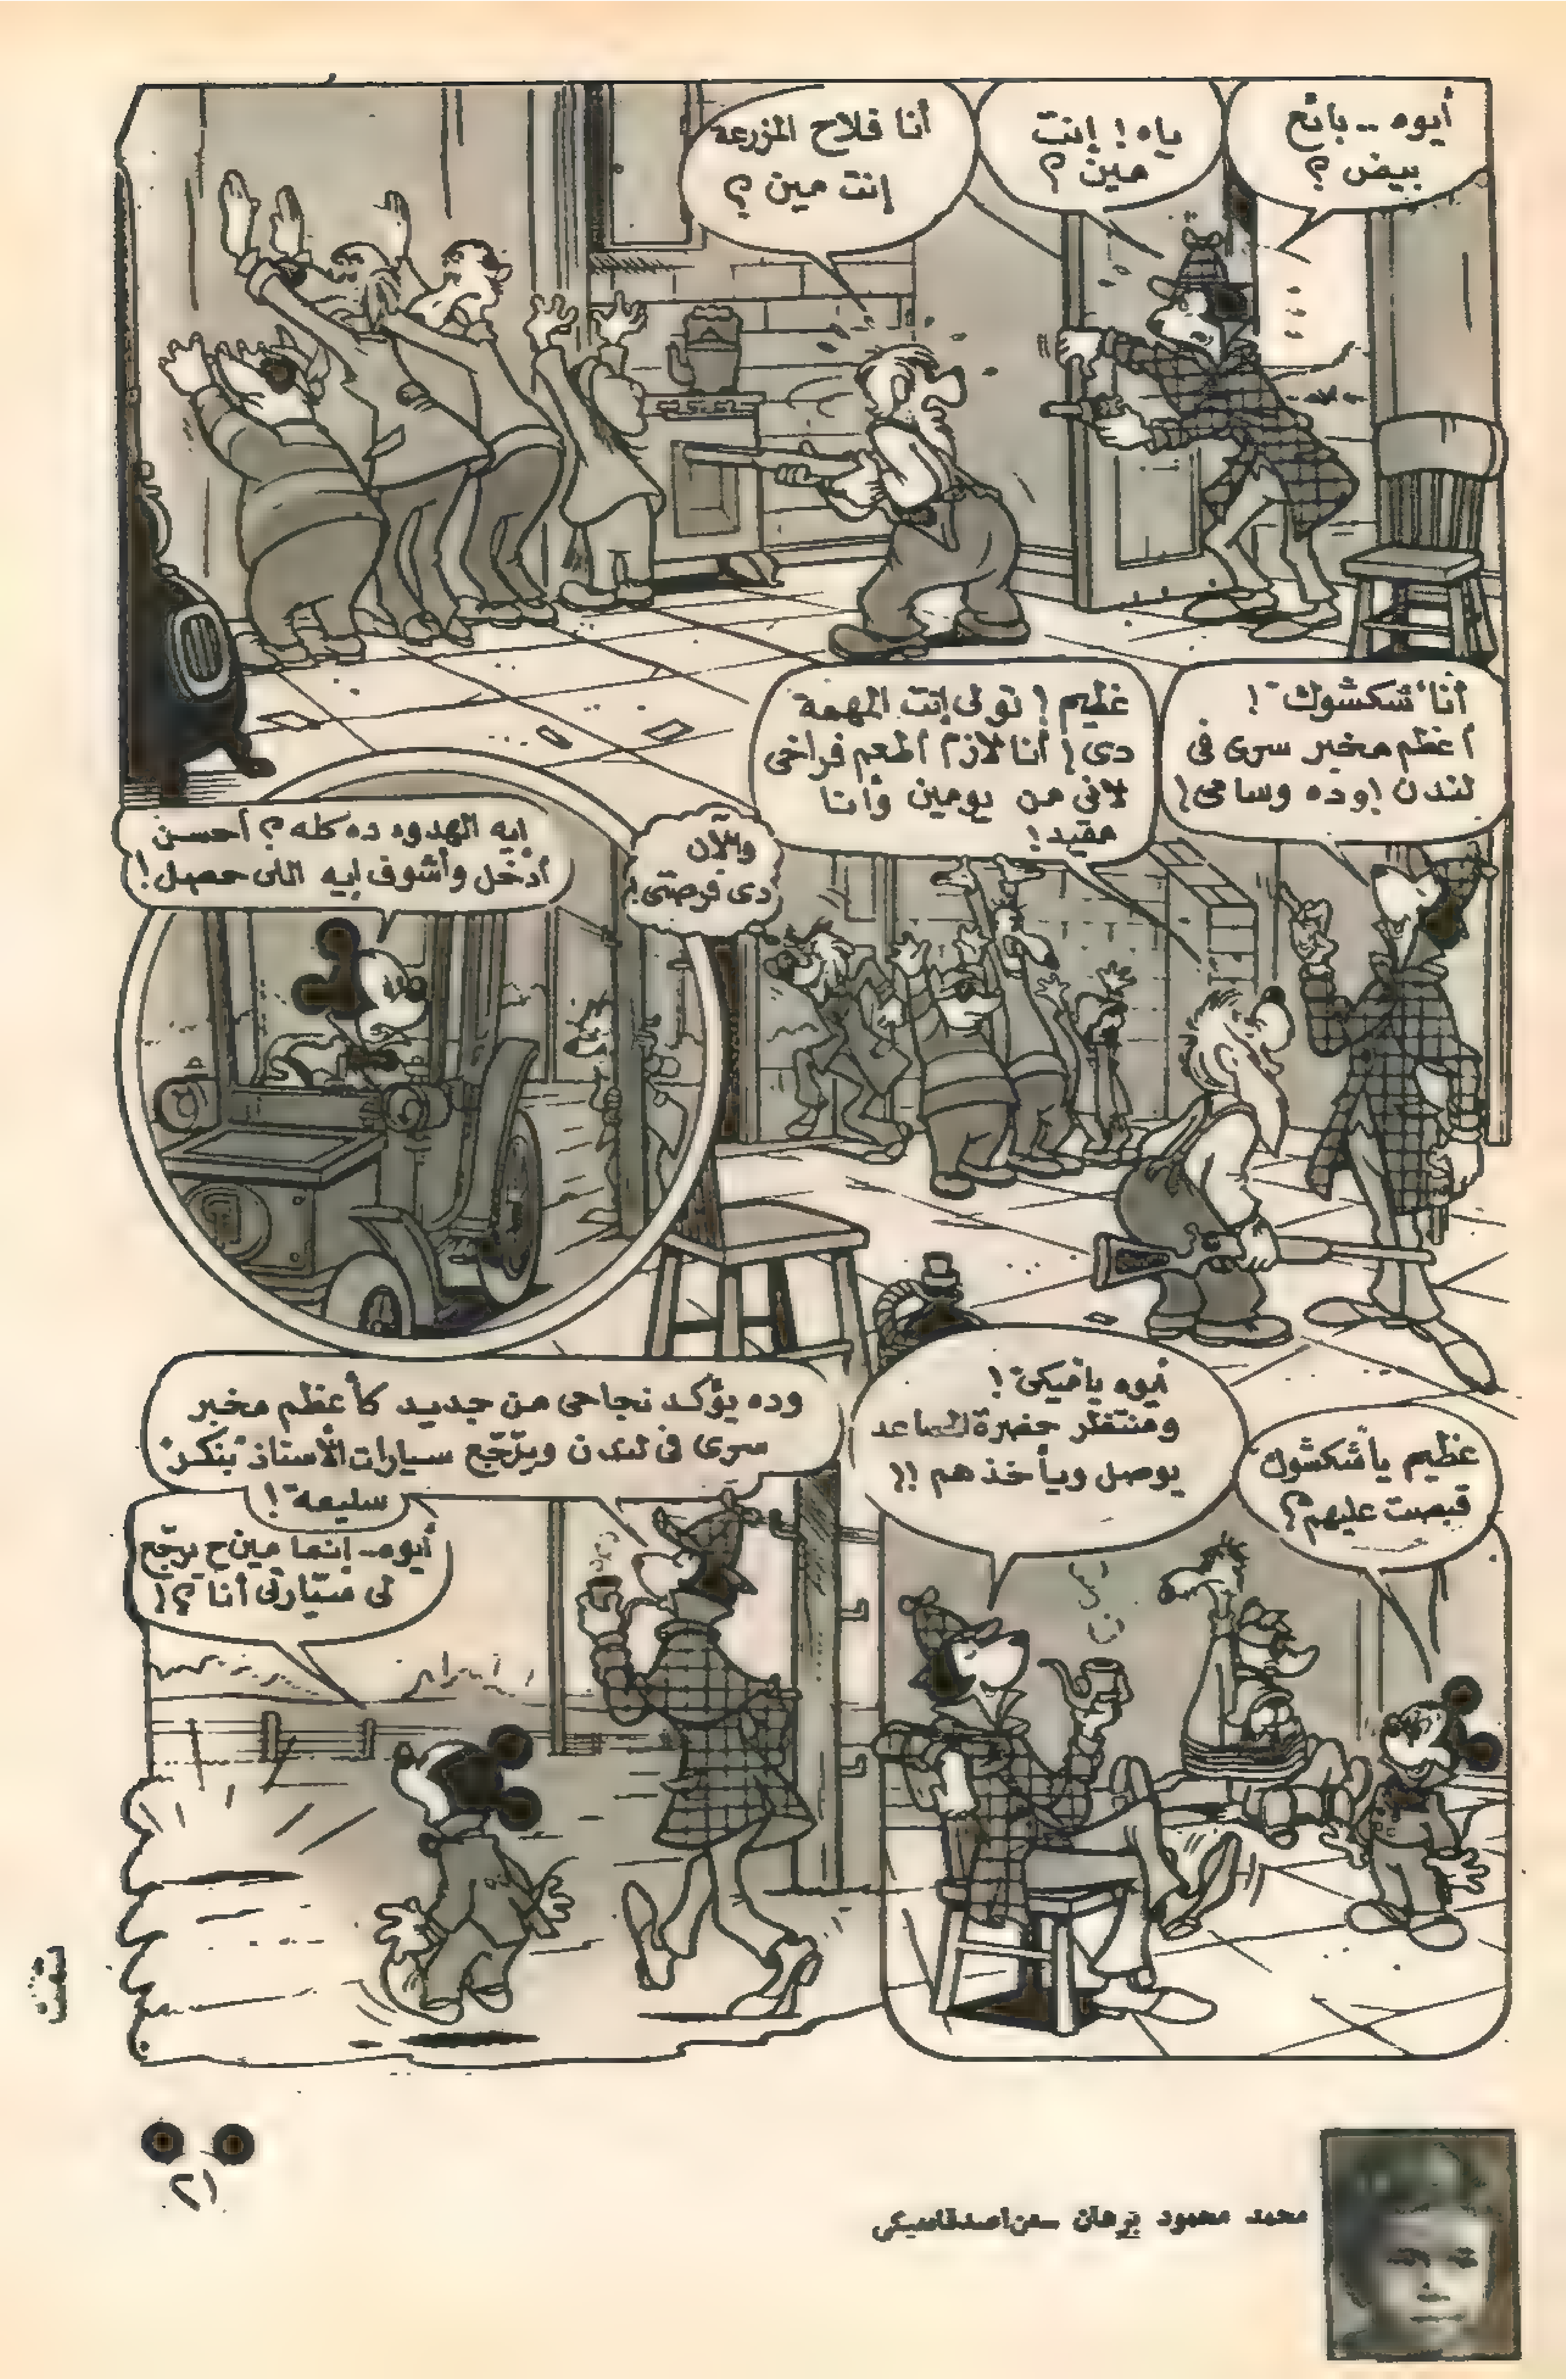 أيوه .. بائع
بيض ؟
ياه ! إنت
مين ؟
أنا فلاح المزرعة
إنت مين ؟
أنا "شكشوك" !
أعظم مخبر سرى فى
لندن !وده وسامى !
عظيم ! تولى إنت المهمة
دى ! أنا لازم أطعم فراخى
لانى من يومين وأنا
مقيد !
والآن
دى فرصتى !
إيه الهدوء ده كله ؟ أحسن
أدخل وأشوف إيه اللى حصل !
عظيم ياشكشوك
قبضت عليهم ؟
أيوه ياميكى !
ومنتظر حضرة المساعد
يوصل وياخذهم !!
وده يؤكد نجاحى من جديد كأعظم مخبر
سرى فى لندن ويرّجّع سيارات الأستاذ "بنكر"
سليمة !
أيوه .. إنما مين ح يرجّع
لى سيّارتى أنا ؟ !
تمت
محمد محمود برهان من اصدقاء ميكى
٢١